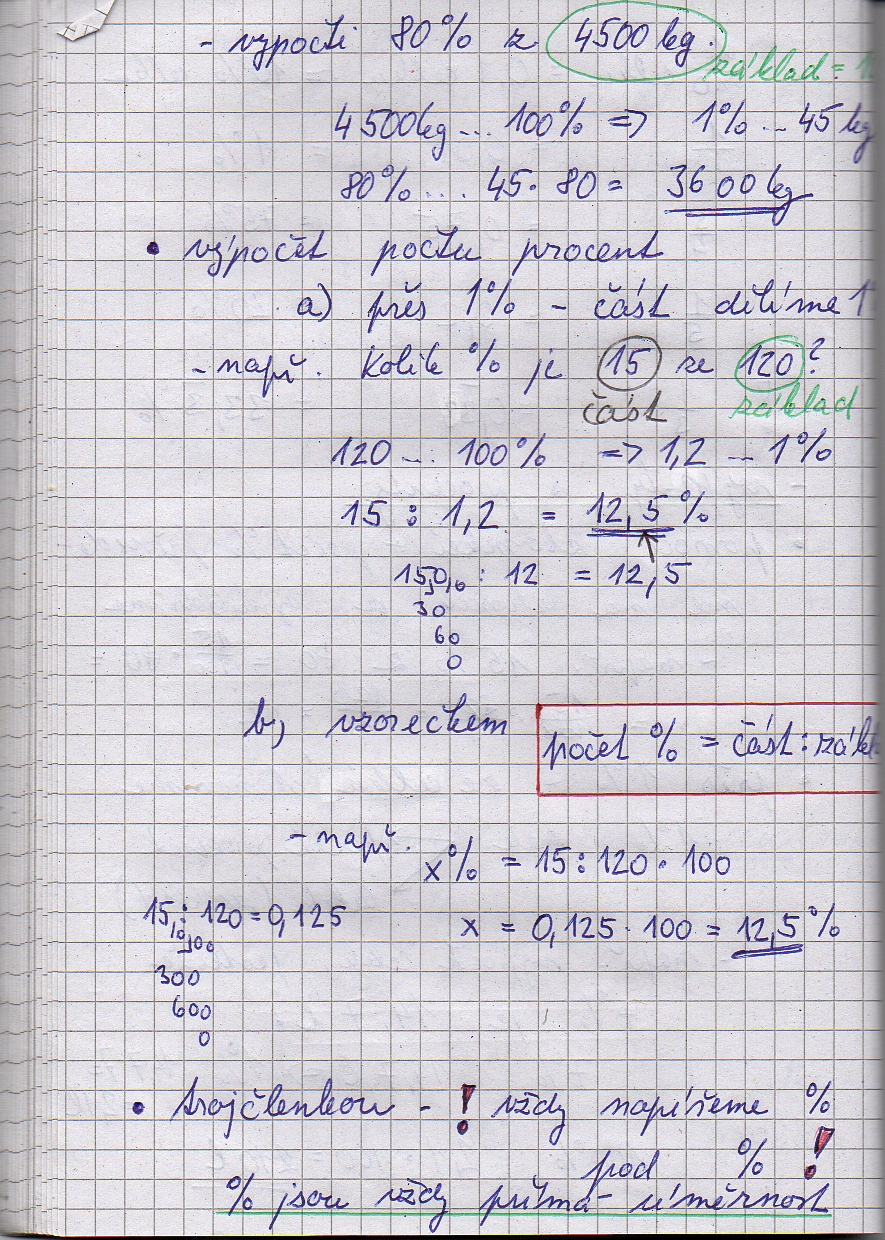 - vypočti 80% z 4500 kg.
základ = 1
4500kg ... 100% => 1% ... 45 kg
80% ... 45 · 80 = 3600 kg
• výpočet počtu procent
a) přes 1% - část dělíme 1
- např. Kolik % je 15 ze 120?
část základ
120 ... 100% => 1,2 ... 1%
15 : 1,2 = 12,5%
15,0,0 : 12 = 12,5
30
60
0
b, vzorečkem
počet % = část : zákl
- např. x% = 15 : 120 · 100
15 : 120 = 0,125
x = 0,125 · 100 = 12,5%
300
600
0
• trojčlenkou - ! vždy napíšeme %
pod % !
% jsou vždy přímá úměrnost